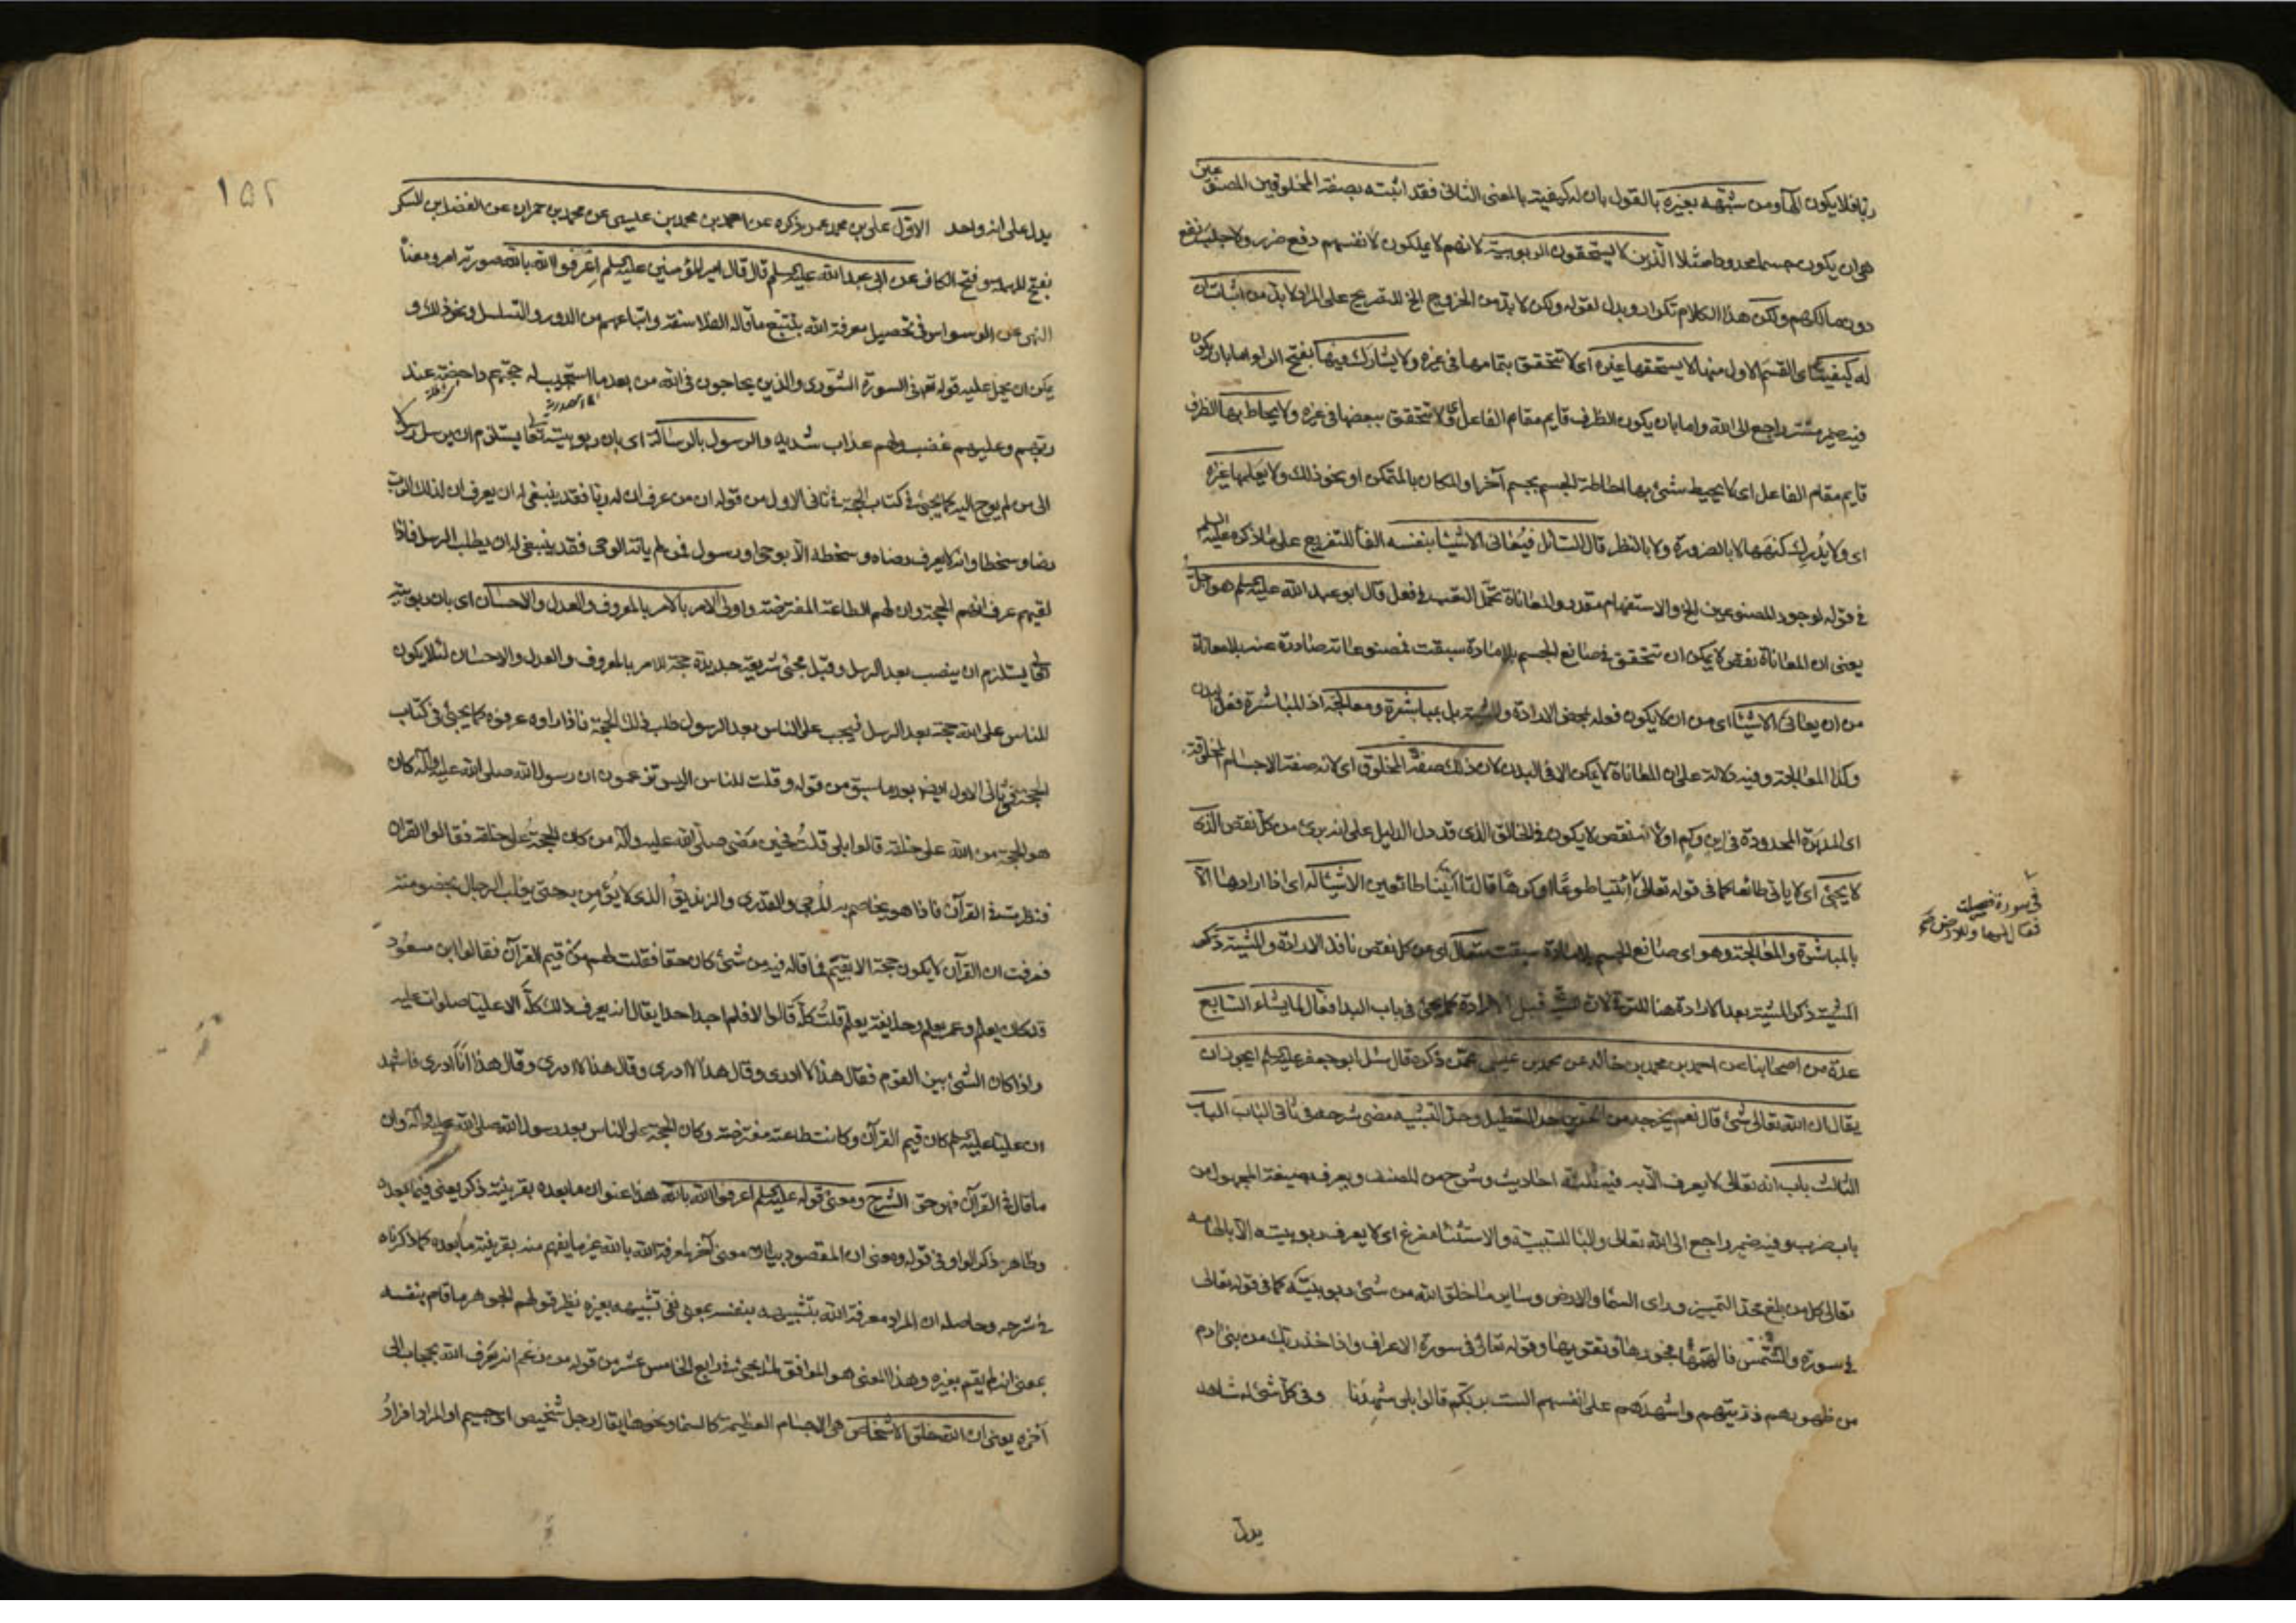 ربّا فلا يكون الهاً ومن شبّهه بغيره بالقول بان له كيفية بالمعنى الثانى فقد اثبته بصفة المخلوقين المصنوعين
هى ان يكون جسما محدودا مثلا الّذين لا يستحقون الربوبية لانهم لا يملكون لانفسهم دفع ضرر ولا جلب نفع
دون مالكهم ولكن هذا الكلام تكرار وبدل لقوله ولكن لا بد من الخروج الخ للتصريح على المراد لا بدّ من اثبات ان
له كيفية اى القسم الاول منها لا يستحقها غيره اى لا تتحقق بتمامها فى غيره ولا يشارك فيها بفتح الراء اما بان يكون
فيه ضمير مستتر راجع الى الله واما بان يكون الظرف قايم مقام الفاعل اى ولا تتحقق ببعضها فى غيره ولا يحاط بها الظرف
قايم مقام الفاعل اى لا يحيط شئ بها احاطة الجسم بجسم آخر او المكان بالمتمكن او نحو ذلك ولا يعلمها غيره
اى ولا يدرك كنهها لا بالضرورة ولا بالنظر قال السائل فيعانى الاشياء بنفسه الفاء للتفريع على ما ذكره عليه السلم
فى قوله لوجود المصنوعين الخ والاستفهام مقدر والمعاناة تحمّل التعب فى فعل قال ابو عبد الله عليه السلم هو اجلّ
يعنى ان المعاناة نقص لا يمكن ان تتحقق فى صانع الجسم بلا مادة سبقت فمصنوعاته صادرة عنه بلا معاناة
من ان يعانى الاشياء اى من ان لا يكون فعله بمحض الارادة والمشية بل بمباشرة ومعالجة اذ المباشرة فعل البدن
وكذا المعالجة وفيه دلالة على ان المعاناة لا يمكن الا فى البدن لان ذلك صفة المخلوق اى لانه صفة الاجسام المخلوقة
اى المدبرة المحدودة فى اين وكم اولا انه نقص لا يكون فى الخالق الذى قد دل الدليل على انه برئ من كل نقص الّذى
لا يجئ اى لا ياتى طائعا كما فى قوله تعالى ائتيا طوعا او كرها قالتا اتينا طائعين الاشياء له اى اذا ارادها الا
بالمباشرة والمعالجة وهو اى صانع الجسم بلا مادة سبقت متعال اى من كل نقص نافذ الارادة والمشية ذكر
المشية ذكر المشية بعد الارادة هنا للترقى لان المشية قبل الارادة كما يجئ فى باب البدا فعال لما يشاء السابع
عدة من اصحابنا عن احمد بن محمد بن خالد عن محمد بن عيسى عمّن ذكره قال سئل ابو جعفر عليه السلم ايجوز ان
يقال ان الله تعالى شئ قال نعم يخرجه من الحدين حد التعطيل وحد التشبيه مضى شرحه فى ثانى الباب الباب
الثالث باب انه تعالى لا يعرف الّا به فيه ثلثة احاديث وشرح من المصنف ويعرف بصيغة المجهول من
باب ضرب وفيه ضمير راجع الى الله تعالى والباء للسببية والاستثناء مفرغ اى لا يعرف ربوبيته الّا بالهامه
تعالى كل من بلغ حدّ التمييز وراى السماء والارض وساير ما خلق الله من شئ ربوبيّته كما فى قوله تعالى
فى سورة والشمس فالهمها فجورها وتقويها وقوله تعالى فى سورة الاعراف واذ اخذ ربك من بنى ادم
من ظهورهم ذرّيتهم واشهدهم على انفسهم الست بربّكم قالوا بلى شهدنا وفى كلّ شئ له شاهد
يدل
فى سورة فصلت
فقال لها وللارض
١٥٢
يدل على انه واحد الاوّل على بن محمد عمن ذكره عن احمد بن محمد بن عيسى عن محمد بن حمران عن الفضل بن السكن
بفتح المهملة وفتح الكاف عن ابى عبد الله عليه السلم قال قال امير المؤمنين عليه السلم اعرفوا الله بالله صورته امر ومعناه
النهى عن الوسواس فى تحصيل معرفة الله بتتبّع ما قاله الفلاسفة واتباعهم من الدور والتسلسل ونحو ذلك و
يمكن ان يحمل عليه قوله تعالى فى السورة الشورى والذين يحاجون فى الله من بعد ما استجيب له حجتهم داحضة عند
ربّهم وعليهم غضب ولهم عذاب شديد والرسول بالرسالة اى بان ربوبيته تعالى يستلزم ان يرسل رسلا
الى من لم يوح اليه كما يجئ فى كتاب الحجة فى ثانى الاول من قوله ان من عرف ان له ربّا فقد ينبغى له ان يعرف ان لذلك الرب
رضا وسخطا وانه لا يعرف رضاه وسخطه الّا بوحى او رسول فمن لم ياته الوحى فقد ينبغى له ان يطلب الرسل فاذا
لقيهم عرف انهم الحجة وان لهم الطاعة المفترضة واولى الامر بالامر بالمعروف والعدل والاحسان اى بان ربوبيته
تعالى يستلزم ان ينصب بعد الرسل وقبل مجئ شريعة جديدة حجة للامر بالمعروف والعدل والاحسان لئلا يكون
للناس على الله حجة بعد الرسل فيجب على الناس بعد الرسول طلب ذلك الحجة فاذا راوه عرفوه كما يجئ فى كتاب
الحجة فى ثانى الاول ايضا بعد ما سبق من قوله وقلت للناس اليس تزعمون ان رسول الله صلى الله عليه وآله كان
هو الحجة من الله على خلقه قالوا بلى قلت فحين مضى صلّى الله عليه وآله من كان الحجة على خلقه فقالوا القران
فنظرت فى القرآن فاذا هو يخاصم به المرجى والقدرى والزنديق الذى لا يؤمن به حتى يغلب الرجال بخصومته
فعرفت ان القرآن لا يكون حجة الا بقيّم فما قال فيه من شئ كان حقا فقلت لهم من قيم القرآن فقالوا ابن مسعود
قد كان يعلم وعمر يعلم وحذيفة يعلم قلت كلّه قالوا لا فلم اجد احدا يقال انه يعرف ذلك كلّه الا عليا صلوات عليه
واذا كان الشئ بين القوم فقال هذا لا ادرى وقال هذا لا ادرى وقال هذا لا ادرى وقال هذا انا ادرى فاشهد
ان عليا عليه السلم كان قيم القرآن وكانت طاعته مفترضة وكان الحجة على الناس بعد رسول الله صلى الله عليه وآله وان
ما قال فى القرآن فهو حق الشرح ومعنى قوله عليه السلم اعرفوا الله بالله هذا عنوان ما بعده بقرينة ذكر يعنى فيما بعده
وظاهر ذكر الواو فى قوله ومعنى ان المقصود بيان معنى آخر لمعرفة الله بالله غير ما يفهم منه بقرينة ما بعده كما ذكرناه
فى شرحه وحاصله ان المراد معرفة الله بتشبيهه بنفسه بمعنى نفى تشبيهه بغيره نظير قولهم الجوهر ما قام بنفسه
بمعنى انه لم يقم بغيره وهذا المعنى هو الموافق لما يجئ فى رابع الخامس عشر من قوله من زعم انه يعرف الله بحجاب الى
آخره يعنى ان الله خلق الاشخاص هى الاجسام العظيمة كالسماء ونحوها يقال رجل شخيص اى جسيم او المراد افراد